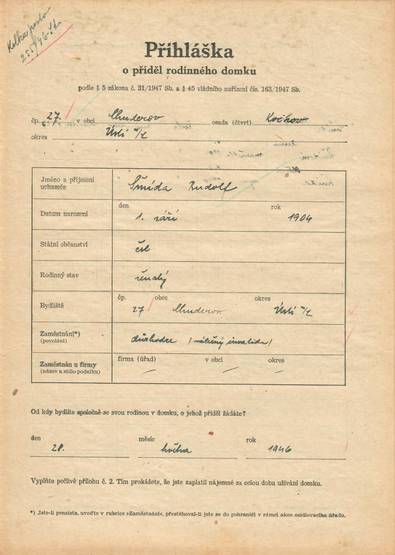 Přihláška
o příděl rodinného domku
podle § 5 zákona č. 31/1947 Sb. a § 45 vládního nařízení čís. 163/1947 Sb.
čp. 27 v obci Chuderov osada (čtvrť)
okres Ústí n/L
Jméno a příjmení uchazeče Šmída Rudolf
den rok
Datum narození 1. září 1904
Státní občanství čsl
Rodinný stav ženatý
čp. obec okres
Bydliště 27 Chuderov Ústí n/L
Zaměstnání*) (povolání) důchodce (válečný invalida)
Zaměstnán u firmy (název a sídlo podniku) firma (úřad) v obci okres
Od kdy bydlíte společně se svou rodinou v domku, o jehož příděl žádáte?
den měsíc rok
28. května 1946
Vyplňte pečlivě přílohu č. 2. Tím prokážete, že jste zaplatil nájemné za celou dobu užívání domku.
*) Jste-li pensista, uveďte v rubrice »Zaměstnán«, přestěhoval-li jste se do pohraničí v rámci akce osidlovacího úřadu.